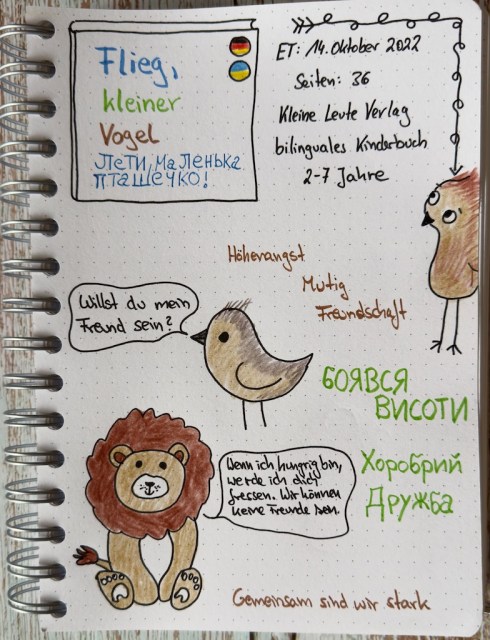 Flieg,
kleiner
Vogel
ЛЕТИ, МАЛЕНЬКА
ПТАШЕЧКО!
ET: 14. Oktober 2022
Seiten: 36
Kleine Leute Verlag
bilinguales Kinderbuch
2-7 Jahre
Höhenangst
Mutig
Freundschaft
Willst du mein
Freund sein?
БОЯВСЯ
ВИСОТИ
Wenn ich hungrig bin,
werde ich dich
fressen. Wir können
keine Freunde sein.
Хоробрий
Дружба
Gemeinsam sind wir stark